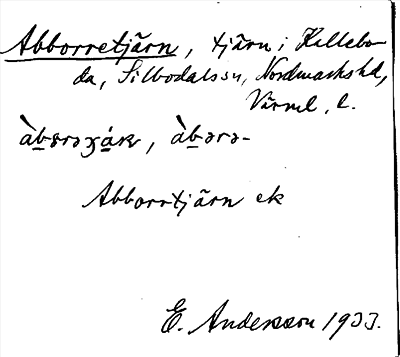 Abborretjärn, tjärn i Hillebo-
da, Silbodals sn, Nordmarks hd,
Värml. l.
Abborrtjärn ek
E. Andersson 1933.